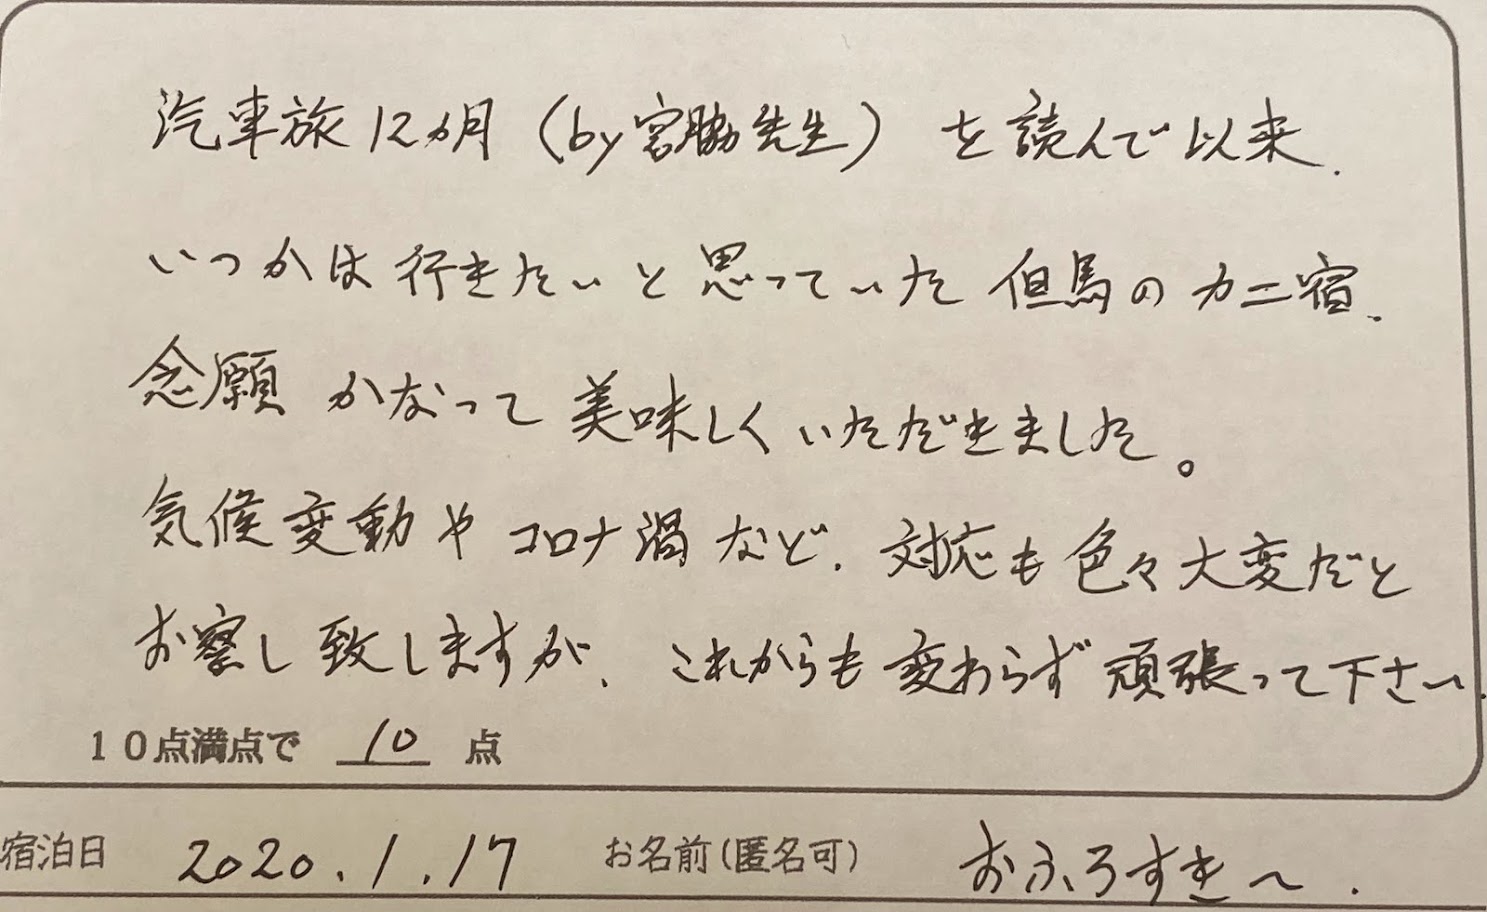 汽車旅12ヵ月（by宮脇先生）を読んで以来、
いつかは行きたいと思っていた但馬のカニ宿、
念願かなって美味しくいただきました。
気候変動やコロナ渦など、対応も色々大変だと
お察し致しますが、これからも変わらず頑張って下さい、
10点満点で 10 点
宿泊日 2020.1.17 お名前（匿名可） おふろすき～.